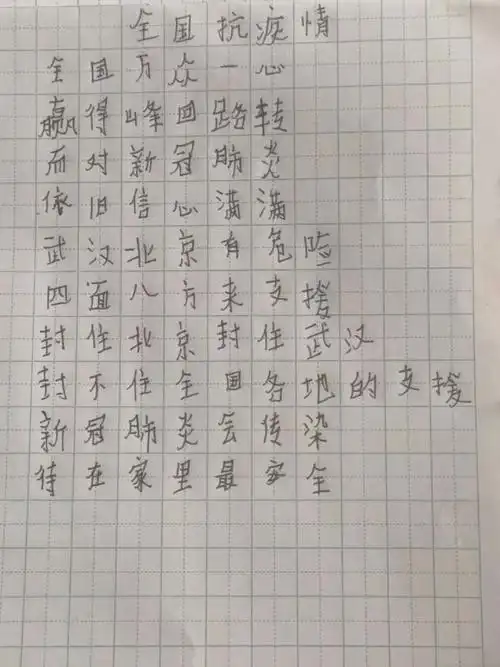 全国抗疫情
全国万众一心
赢得峰回路转
而对新冠肺炎
依旧信心满满
武汉北京有危险
四面八方来支援
封住北京封住武汉
封不住全国各地的支援
新冠肺炎会传染
待在家里最安全